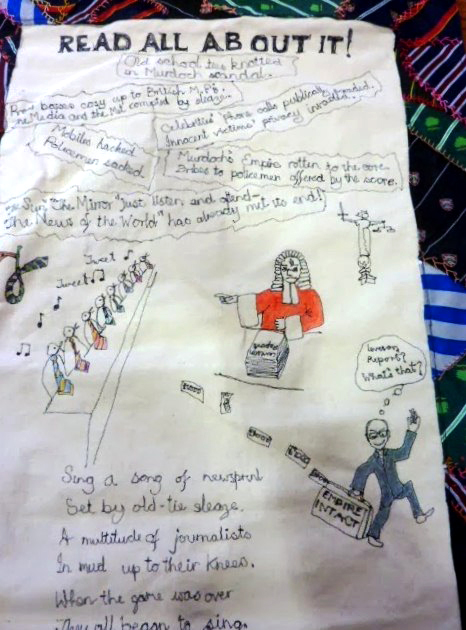 READ ALL ABOUT IT!
Old school ties knotted
in Murdoch scandal.
Press bosses cosy up to British M.P's.
The Media and the Met corrupted by sleaze.
Celebrities' phone calls publicly invaded.
Innocent victims' privacy invaded.
Mobiles hacked
Policemen sacked
Murdoch's Empire rotten to the core.
Bribes to policemen offered by the score.
The Sun, "The Mirror" just listen and attend-
"The News of the World" has already met its end!
Tweet
Tweet
Leveson
Report?
What's that?
EMPIRE
INTACT
Sing a song of newsprint
Set by old-tie sleaze.
A multitude of journalists
In mud up to their knees.
When the game was over
They all began to sing.